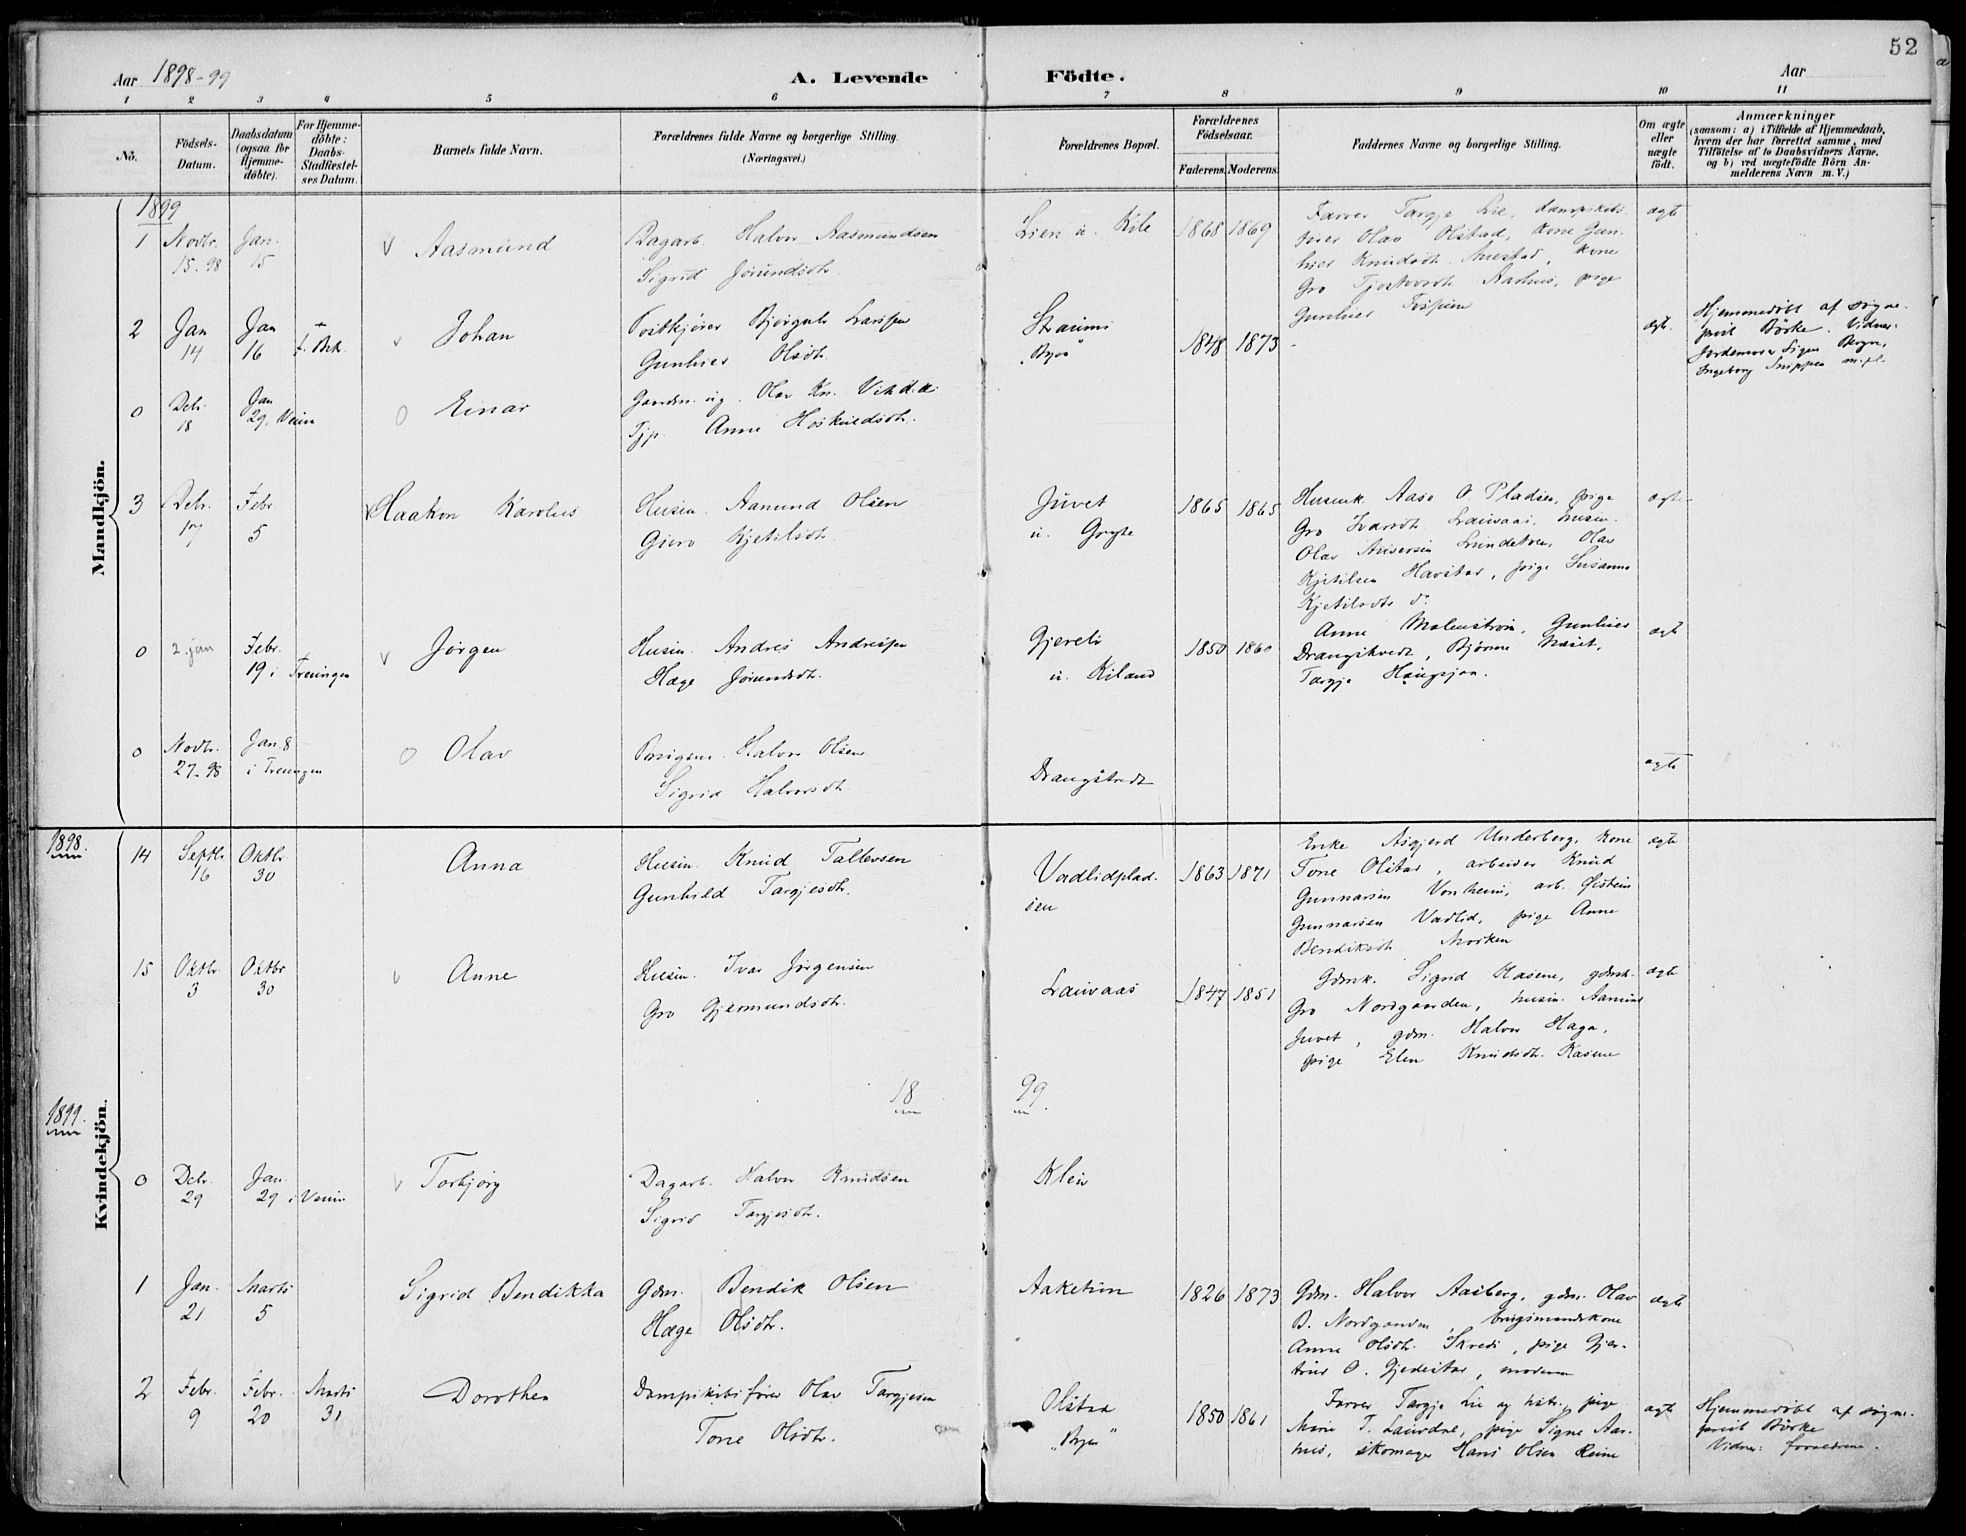 52
Aar 1898-99
A. Levende Födte.
Aar
1 2 3 4 5 6 7 8 9 10 11
No.
Födsels-Datum.
Daabsdatum (ogsaa for Hjemme-döbte).
For Hjemme-döbte: Daabs-Stadfæstel-ses Datum.
Barnets fulde Navn.
Forældrenes fulde Navne og borgerlige Stilling.
(Næringsvei.)
Forældrenes Bopæl.
Forældrenes Födselsaar.
Faderens. Moderens.
Faddernes Navne og borgerlige Stilling.
Om ægte eller uægte födt.
Anmærkninger
(saasom: a) i Tilfælde af Hjemmedaab,
hvem der har forrettet samme, med
Tilföielse af to Daabsvidners Navne,
og b) ved uægtefödte Börn An-
melderens Navn m. V.)
Mandkjön.
1899
1 Novbr. 15.98 Jan. 15 v Aasmund
Dagarb. Halvor Aasmundsen
Sigrid Jörundsdtr.
Lien u. Kile 1868 1869
Farver Targje Lie, dampskibs-
förer Olav Olstad, kone Gun-
hild Knudsdt. kone
Gro Aarhus, pige
Gunhild
ægte
2 Jan 14 Jan 16 v Johan
Björgulv Larssen
Gunhild Olsdtr.
Straume
"Byen" 1848 1873 -
ægte.
Hjemmedöbt af sogne-
præst Börke. Vidner
Jordemor Signe
Ingeborg m. fl.
0 Debr. 18 Jan 29. Veum O Einar
Gaardm. ug. Olav Kn.
Pige Anne
3 Debr. 17 Febr 5 v Haakon Karolus
Husm. Aanund Olsen
Guro Kjetilsdtr.
Juvet
u. 1865 1865
Husmk. Aase O. Pladsen, pige
Gro Ivarsdt. Lauvaas, husm.
Olav Lundetræ, Olav
Kjetilsen Havstad, pige Susanne
Kjetilsdtr do.
ægte
0 2. jan Febr. 19 i Treungen v Jörgen
Husm. Andres Andressen
Hæge Jörundsdtr.
Gjereli
u. Kiland 1850 1860
Anne Malmström, Gunhild
Drangstvedt, Björine Næset,
Targje Haugsjaa.
ægte
0 Novbr. 27.98 Jan. 8 i Treungen O Olav
Halvor Olsen
Sigrid Halvorsdtr.
Drangstvedt
ægte
Kvindekjön.
1898.
14 Septbr. 16 Oktbr 30 Anna
Husm. Knud Tallevsen
Gunhild Targjesdtr.
Vadlidplad-
sen 1863 1871
Enke Asgjerd Underberg, kone
Tone Olstad, arbeider Knud
Gunnarsen Vonheim, arb. Östein
Gunnarsen Vadlid, pige Anne
Bendiksdt. Mosken
ægte
15 Oktbr. 3 Oktbr 30 v Anne
Husm. Ivar Jörgensen
Gro Gjermundsdtr.
Lauvaas 1847 1851
Gdmk. Sigrid Kasene, gdmk.
Gro Nordgaarden, husm. Aanund
Juvet, gdm. Halvor Haga,
pige Elen Knudsdt. Kasene
ægte
18 99.
1899.
0 Debr. 29 Jan. 29 i Veum v Torbjörg
Dagarb. Halvor Knudsen
Sigrid Targjesdtr.
Kleiv
1 Jan. 21 Marts 5 Sigrid Bendikka
Gdm. Bendik Olsen
Hæge Olsdtr.
Aaketun 1826 1873
Gdm. Halvor Aasberg, gdm. Olav
B. Nordgarden, brugsmandskone
Anne Olsdt. Skredi, pige Gjer-
trud O. Gjedestad, moderen
ægte
2 Febr. 9 Febr. 20 Marts 31 Dorothea
Dampskibsförer Olav Targjesen
Tone Olsdtr.
Olstad
"Byen" 1850 1861
Farver Targje Lie og hstr., pige
Marie T. Lauvdal, pige Signe Aar-
hus, skomager Hans Olsen Reine
ægte
Hjemmedöbt af sogne-
præst Börke
Vidner: forældrene.